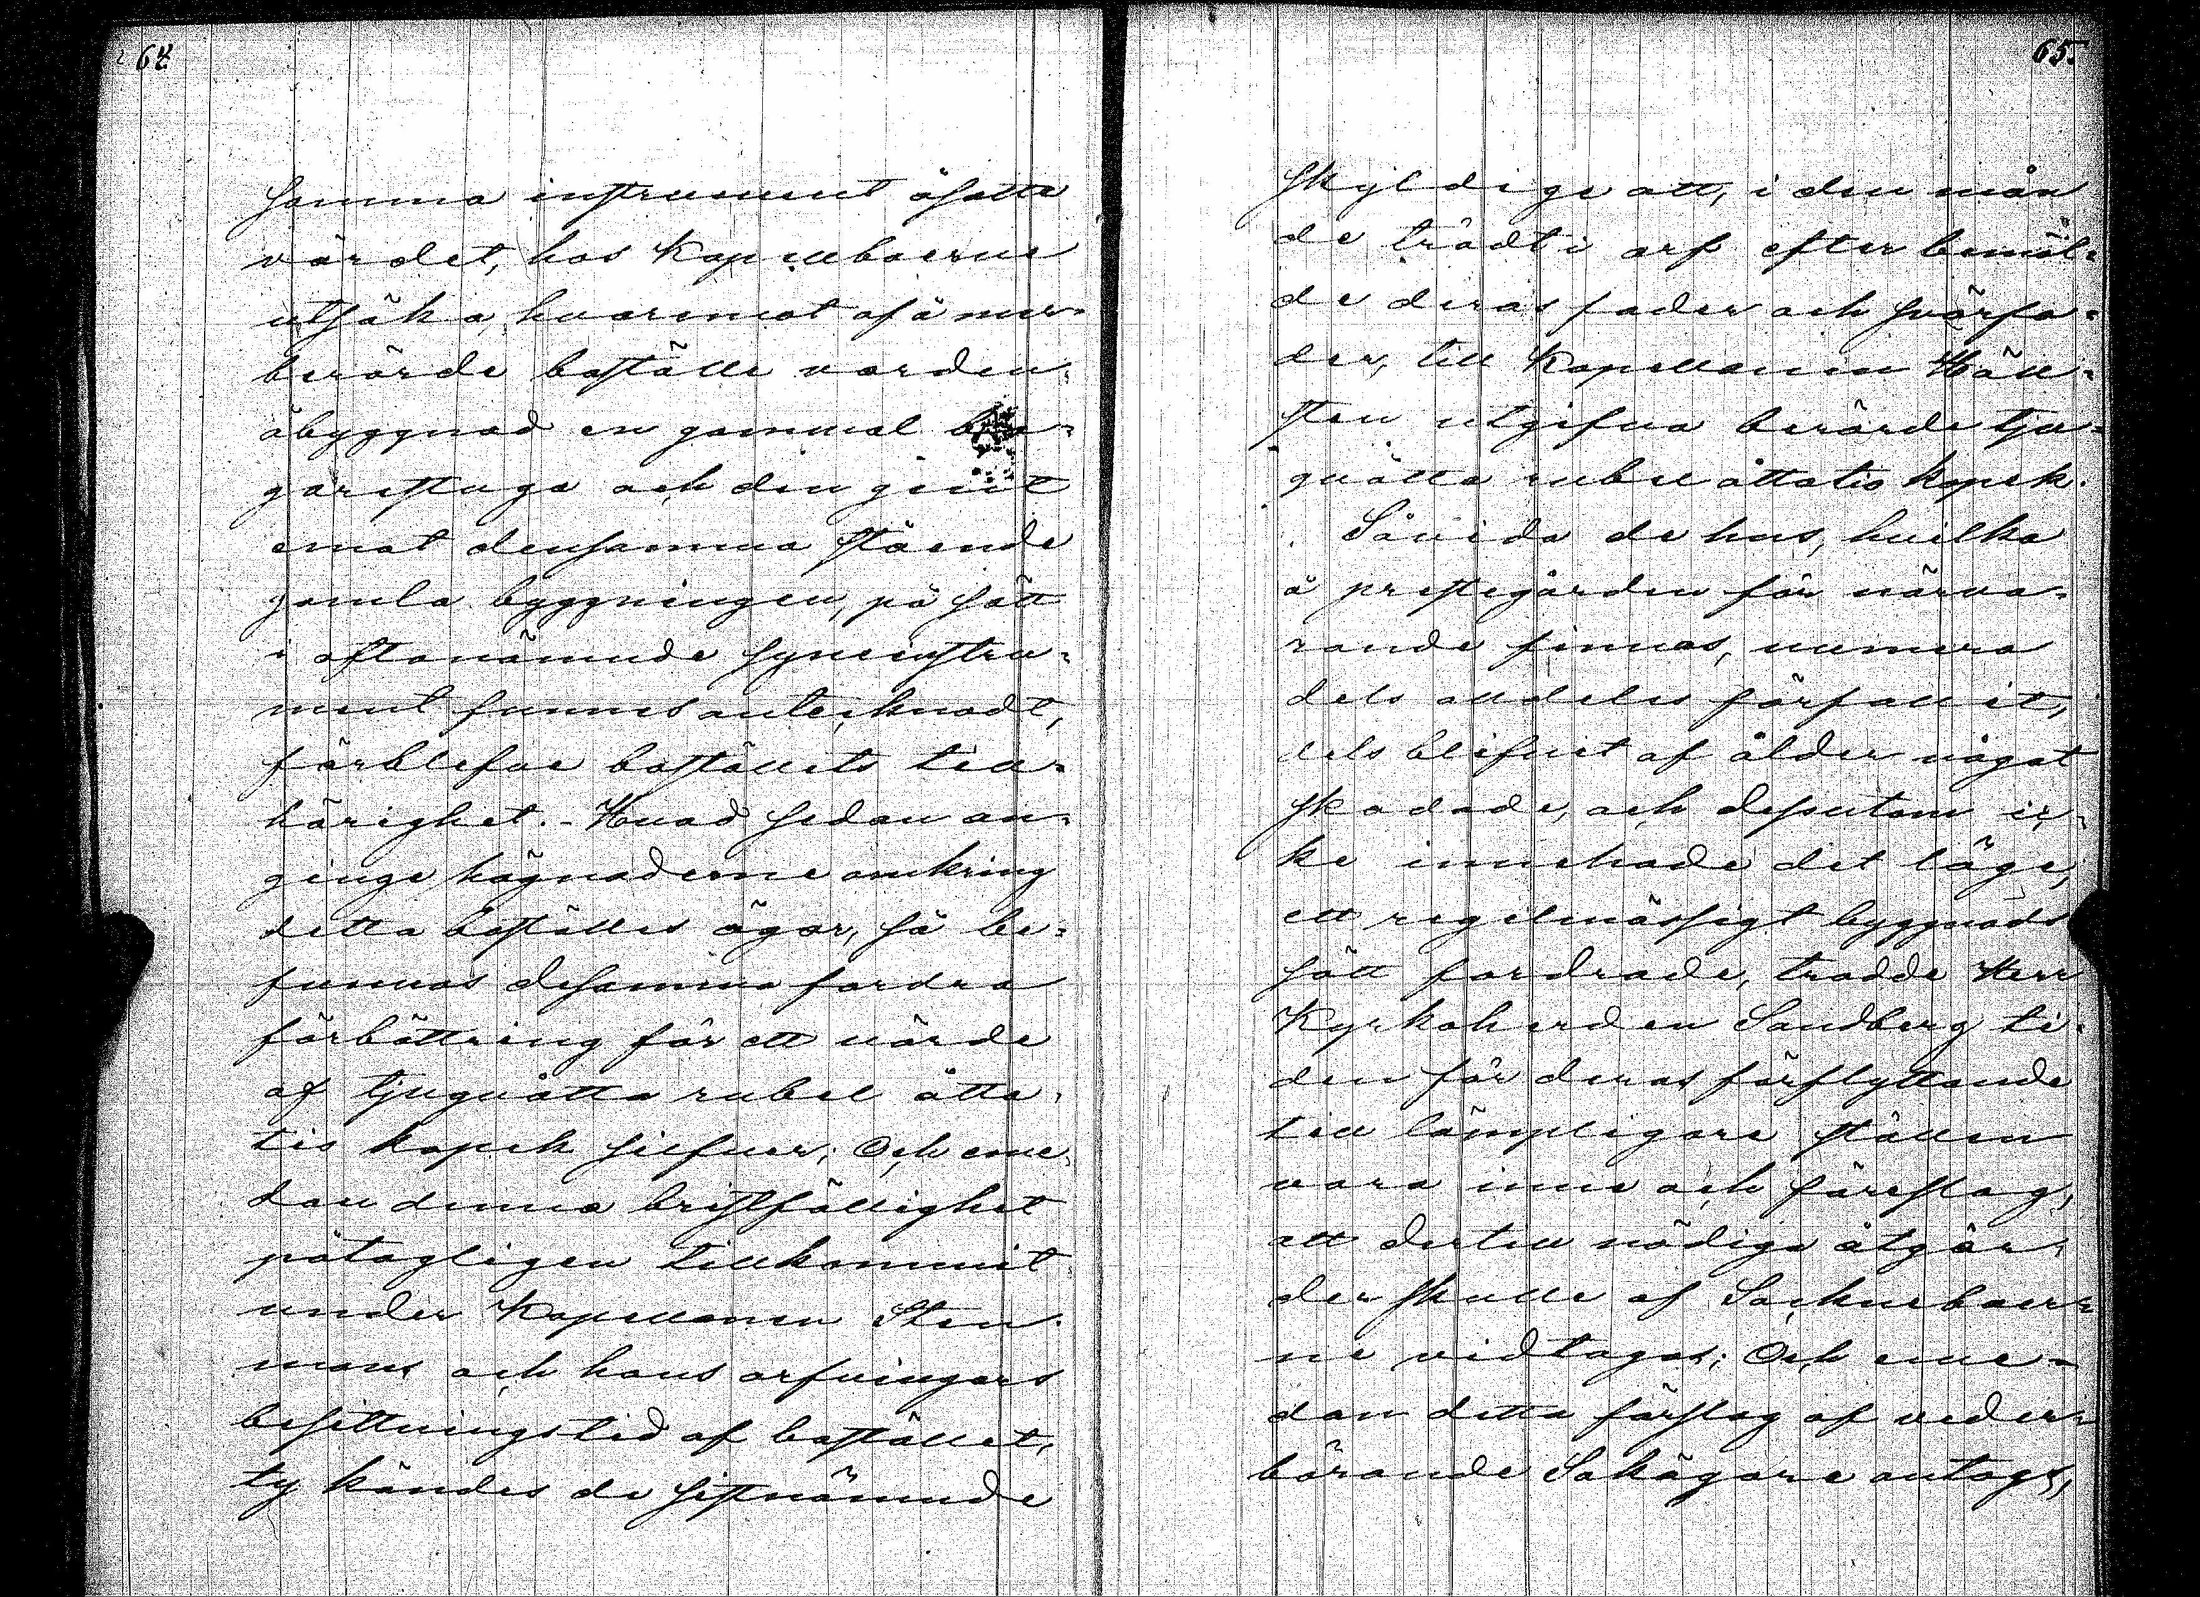 64
samma instrument åsatte
värdet, hos Kapellboerne
utsöka, hvaremot af å mer-
berörde boställe varden-
åbyggnad en gammal ba-
garestuga och den gent
emot densamma stående
gamla byggningen, på sätt
i oftanämnde syneinstru-
ment funnes antecknadt,
förblefve boställets till-
hörighet. - Hvad sedan an-
ginge hägnaderne omkring
detta boställes ägor, så be-
funnos desamma fordra
förbättring för ett värde
af tjuguåtta rubel åtta-
tio kopek silfver; Och eme-
dan denna bristfällighet
påtagligen tillkommit
under Kapellanen Sten-
mans och hans arfvingars
besittningstid af bostället,
ty kändes de sistnämnde
65.
skyldige att, i den mån
de trädt i arf efter bemäl-
de deras fader och svärfa-
der, till Kapellanen Häll-
sten utgifva berörde tju-
guåtta rubel åttatio kopek.
Såvida de hus, hvilka
å prestegården för närva-
rande finnas, numera
dels alldeles förfallit,
dels blifvit af ålder något
skadade, och dessutom ic-
ke innehade det läge,
ett regelmässigt byggnads
sätt fordrade, trodde Herr
Kyrkoherden Sandberg ti-
den för deras förflyttande
till lämpligare ställen
vara inne och föreslog,
att dertill nödiga åtgär-
der skulle af Socknebaer-
ne vidtagas; Och eme-
dan detta förslag af veder-
börande Sakägare antogs,